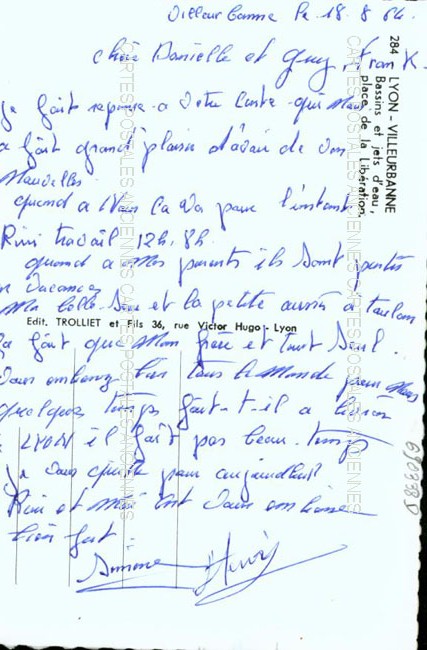 Villeurbanne le 18.8.64.
chère Danielle et Guy, Frank.
je fait reponse a votre Carte qui nous
a fait grand plaisir d'avoir de vos
Nouvelles.
quand a Nous Ca Va pour l'instant
Riri travail 12h.8h.
quand a Mes parents ils sont partis
en Vacances
Ma belle-Sœur et la petite aussi a Toulon
Edit. TROLLIET et Fils 36, rue Victor Hugo - Lyon
Ca fait que Mon frère et tout Seul.
Vous tous le Monde pour Nous
quelques temps fait-t-il a
a LYON il fait pas beau temps
je vous quitte pour aujourdhui
Riri et Moi Vous embrasse
bien fort.
Simone Henri
284 LYON - VILLEURBANNE
Bassins et jets d'eau,
place de la Libération.
CARTES POSTALES ANCIENNES CARTES POSTALES ANCIENNES
CARTES POSTALES ANCIENNES CARTES POSTALES ANCIENNES